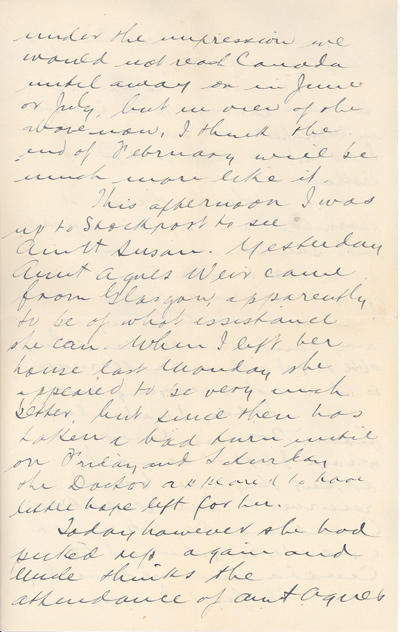 under the impression we
would not reach Canada
until away on in June
or July, but in view of the
above now, I think the
end of February will be
much more like it.
This afternoon I was
up to Stockport to see
Aunt Susan. Yesterday
Aunt Agnes Weir came
from Glasgow, apparently
to be of what assistance
she can. When I left her
house last Monday she
appeared to be very much
better, but since then has
taken a bad turn until
on Friday and Saturday
the Doctor to have
little hope left for her.
Today however she had
picked up again and
Uncle thinks the
attendance of Aunt Agnes